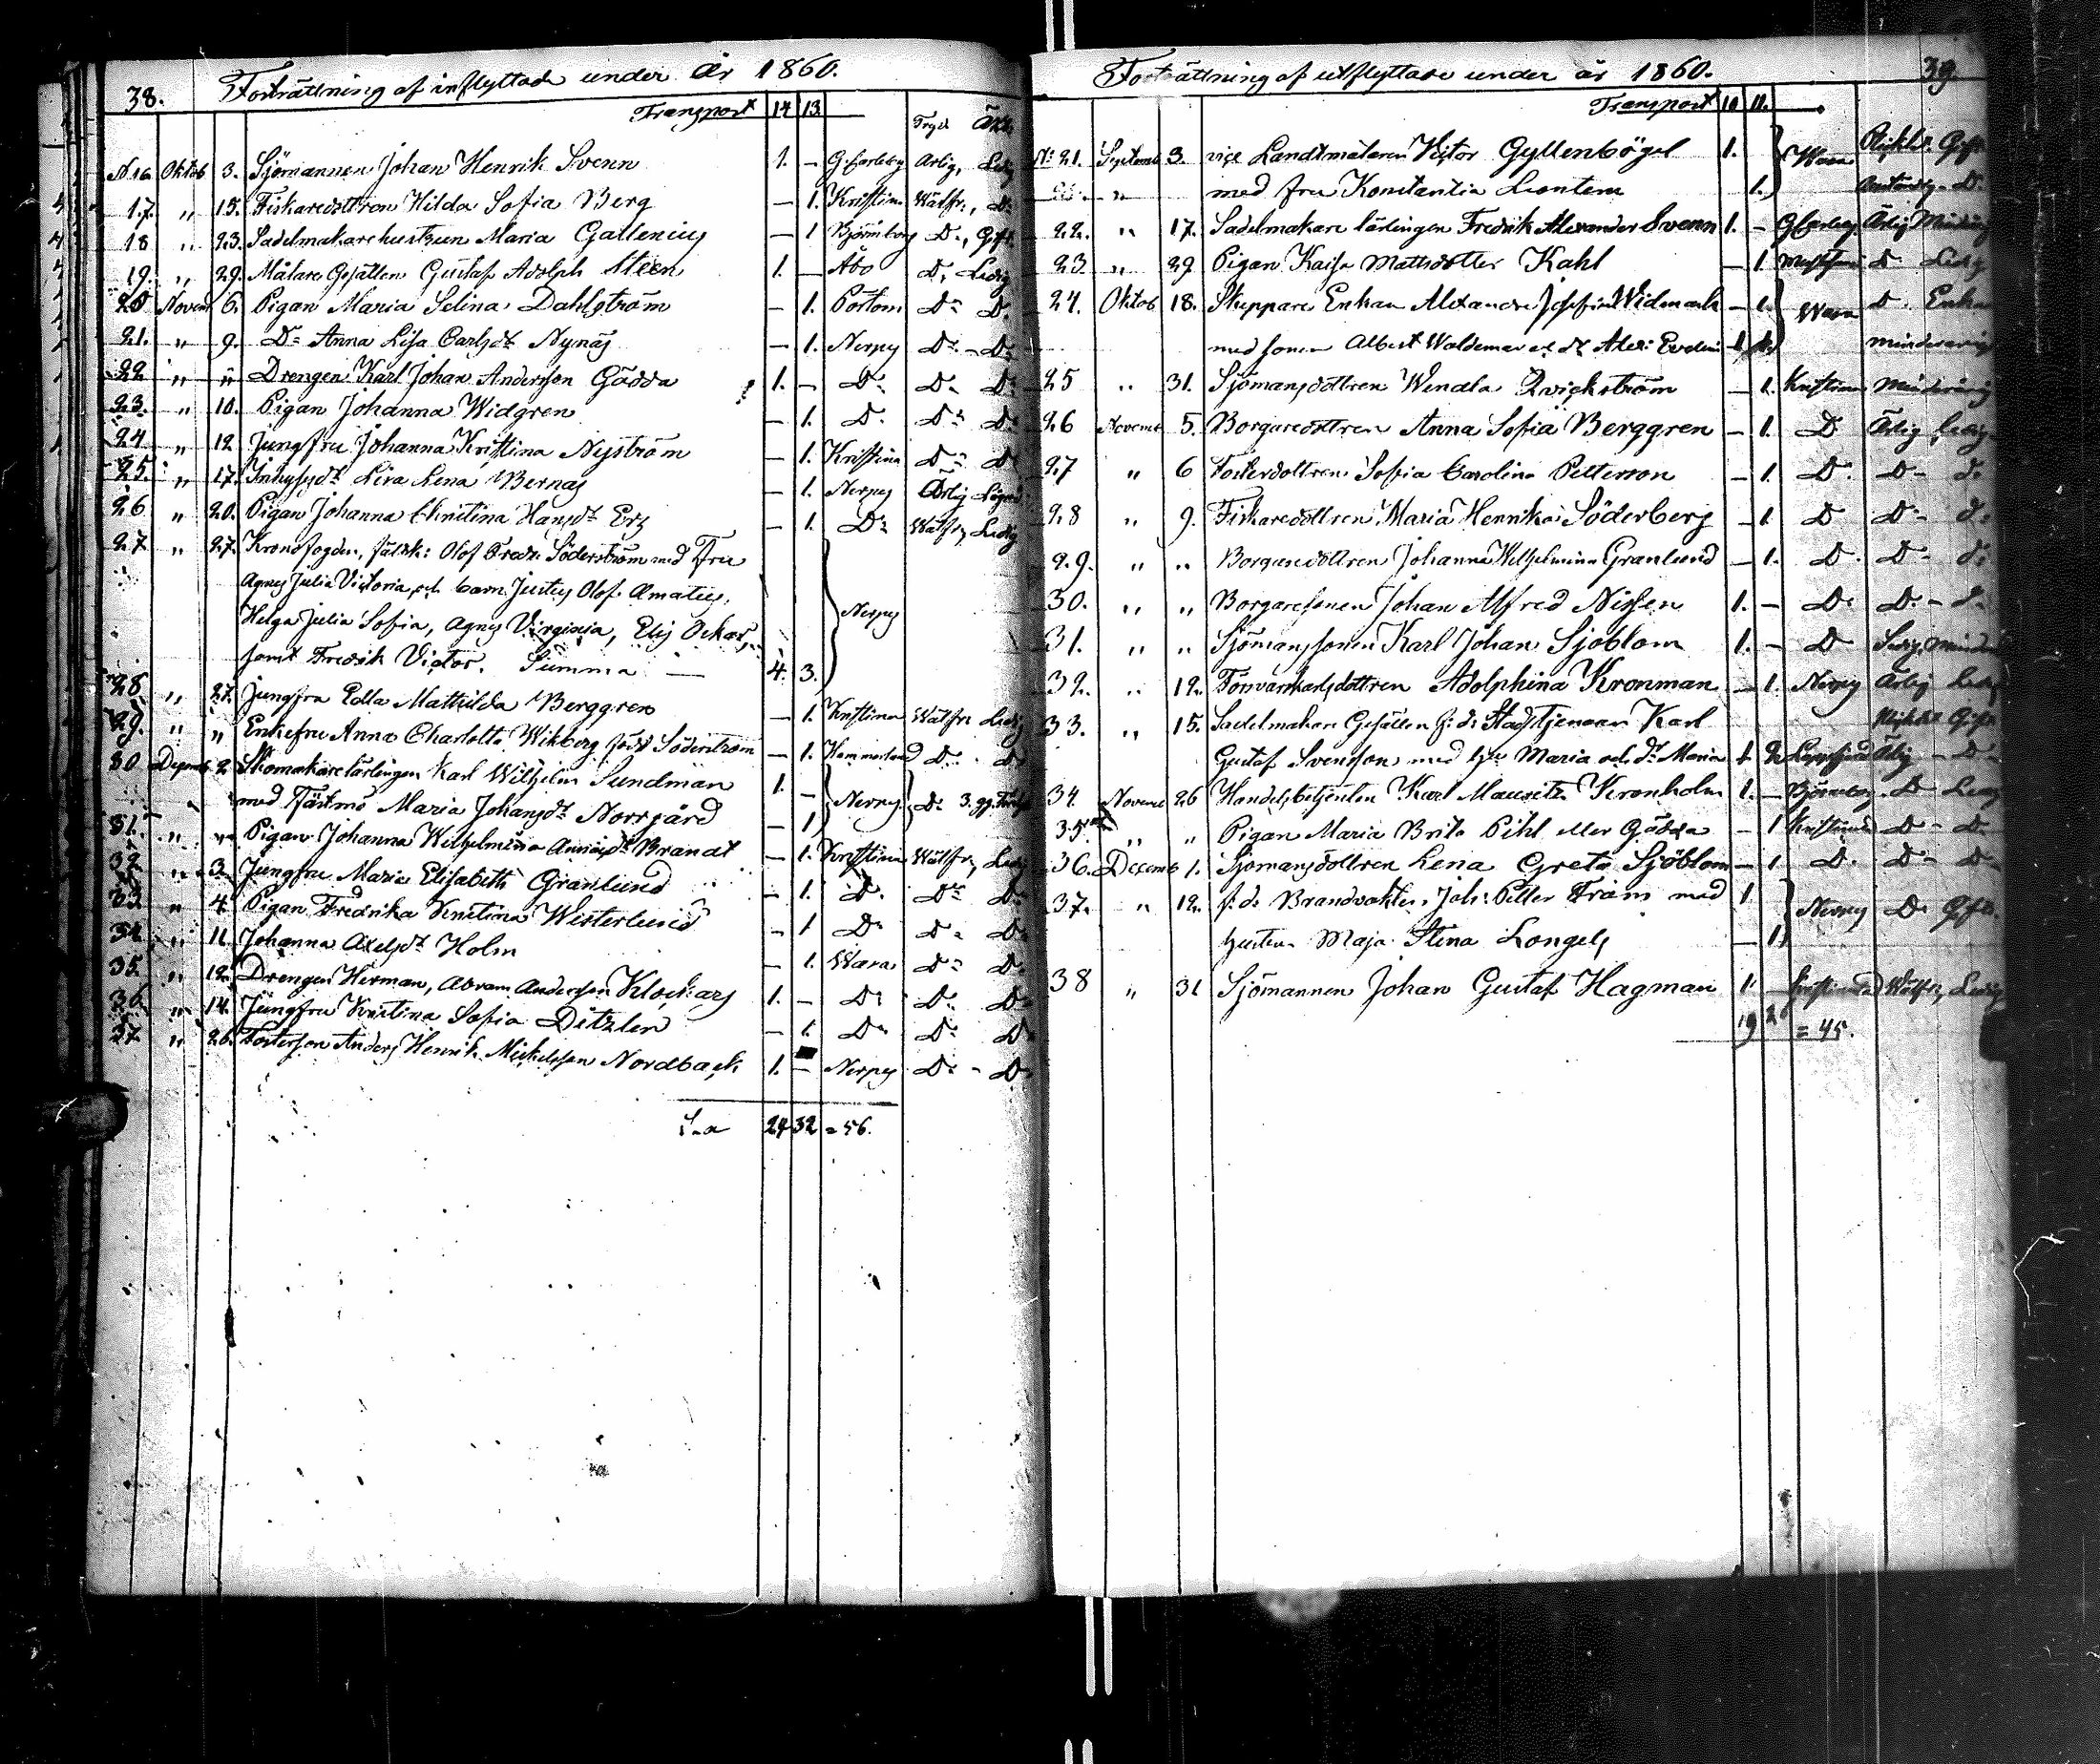 38. Fortsättning af inflyttade under år 1860.
Transport 14 13
Frejd Äkt.
N 16 Oktob 3. Sjömannen Johan Henrik Svenn 1. — G:Carleby Ärlig, Ledig
17. " 15. Fiskaredottren Hilda Sofia Berg — 1. Kristina Wälfr:, D:
18 " 23. Sadelmakarehustrun Maria Gallenius — 1 Björneborg D:, Gift.
19. " 29. Målare Gesällen Gustaf Adolph Steen 1. — Åbo D: Ledig
20 Novem 6. Pigan Maria Selina Dahlström — 1. Pörtom D: D:
21. " 9. D: Anna Lisa Carlsdr Nynäs — 1. Nerpes D: — D:
22 " " Drengen Karl Johan Andersson Gädda 1. — D: D: D:
23. " 10. Pigan Johanna Widgren — 1. D: D: D:
24 " 12. Jungfru Johanna Kristina Nyström — 1. Kristina D: D:
25. " 17. Lena Bernas — 1. Nerpes Ärlig
26 " 20. Pigan Johanna Christina Hansdr Ers — 1. D: Wälfr, Ledig
27 " 27. Kronofogden, Olof Fredr: Söderström med Fru
Agnes Julia Victoria, och barn Justus Olof Amatus,
Helga Julia Sofia, Agnes Virginia, Elis Oskar, Nerpes
samt Fredrik Victor. Summa — 4. 3.
28. " 27. Jungfru Edla Mathilda Berggren — 1. Kristina Wälfr: Ledig
29. " " Enkefru Anna Charlotta Wikberg född Söderström — 1. D: D:
30 Decemb 2 Skomakarelärlingen Karl Wilhelm Sundman 1. —
med Fästmö Maria Johansdr Norrgård — 1 Nerpes D: 3. gg.
31. " " Pigan Johanna Wilhelmina Brandt — 1. Kristina Wälfr, Ledig
32 " 3. Jungfru Maria Elisabeth Granlund — 1. D: D: D:
33 " 4 Pigan Fredrika Kristina Westerlund — 1 D: D: D:
34 " 11. Johanna Axelsdr Holm — 1. Wasa D: D:
35. " 12. Drengen Herman, Abram Andersson Klockars 1. — D: D: D:
36. " 14. Jungfru Kristina Sofia Ditzlen — 1. D: D: D
37. " 26. Fosterson Anders Henrik Mickelsson Nordback 1. — Nerpes D: - D:
S:a 24 32 = 56.
Fortsättning af utflyttade under år 1860. 39.
Transport 10 11.
N: 21. Septemb 3. vice Landtmätaren Victor Gyllenbögel 1. Wasa Gift
" med fru Konstantia 1. Anständig - D.
22. " 17. Sadelmakare lärlingen Fredrik Alexander Svenn 1. — G:Carleby Ärlig
23 " 29 Pigan Kajsa Mattsdotter Kahl — 1. D Ledig
24. Oktob 18. Skeppare Enkan Alexandra Josefina Widmark — 1. Wasa D. Enka
med sonen Albert Waldemar och dr 1 1. minderårig
25 " 31. Sjömansdottren Wendla Qvickström — 1. Kristina Minderårig
26 Novemb 5. Borgaredottren Anna Sofia Berggren — 1. D Ärlig Ledig
27 " 6 Fosterdottren Sofia Carolina Petterson — 1. D. D - d:
28 " 9. Fiskaredottren Maria Henrika Söderberg — 1. D D: - d:
29. " " Borgaredottren Johanna Wilhelmina Granlund — 1. D. D - d:
30. " " Borgaresonen Johan Alfred Nissen 1. — D. D. - d.
31. " " Sjömanssonen Karl Johan Sjöblom 1. — D
32. " 12. Adolphina Kronman — 1. Nerpes Ärlig Ledig
33. " 15. Sadelmakare Gesällen f: d: Stadstjenaren Karl Gift
Gustaf Svensson med Maria och dr Maria 1 2 Lappfjerd Ärlig - D
34. Novemb 26 Handelsbetjenten Karl Mauritz Kronholm 1. — Björneborg D Ledig
35. " " Pigan Maria Brita Pihl eller Gädda — 1 Kristina D - D
36. Decemb 1. Sjömansdottren Lena Greta Sjöblom — 1 D. D - D
37. " 12. f. d. Brandvakten Joh: Petter Fram med 1. Nerpes D. Gift.
hustrun Maja Stina Longels — 1.
38 " 31 Sjömannen Johan Gustaf Hagman 1. Wälfr, Ledig
19 26 = 45.